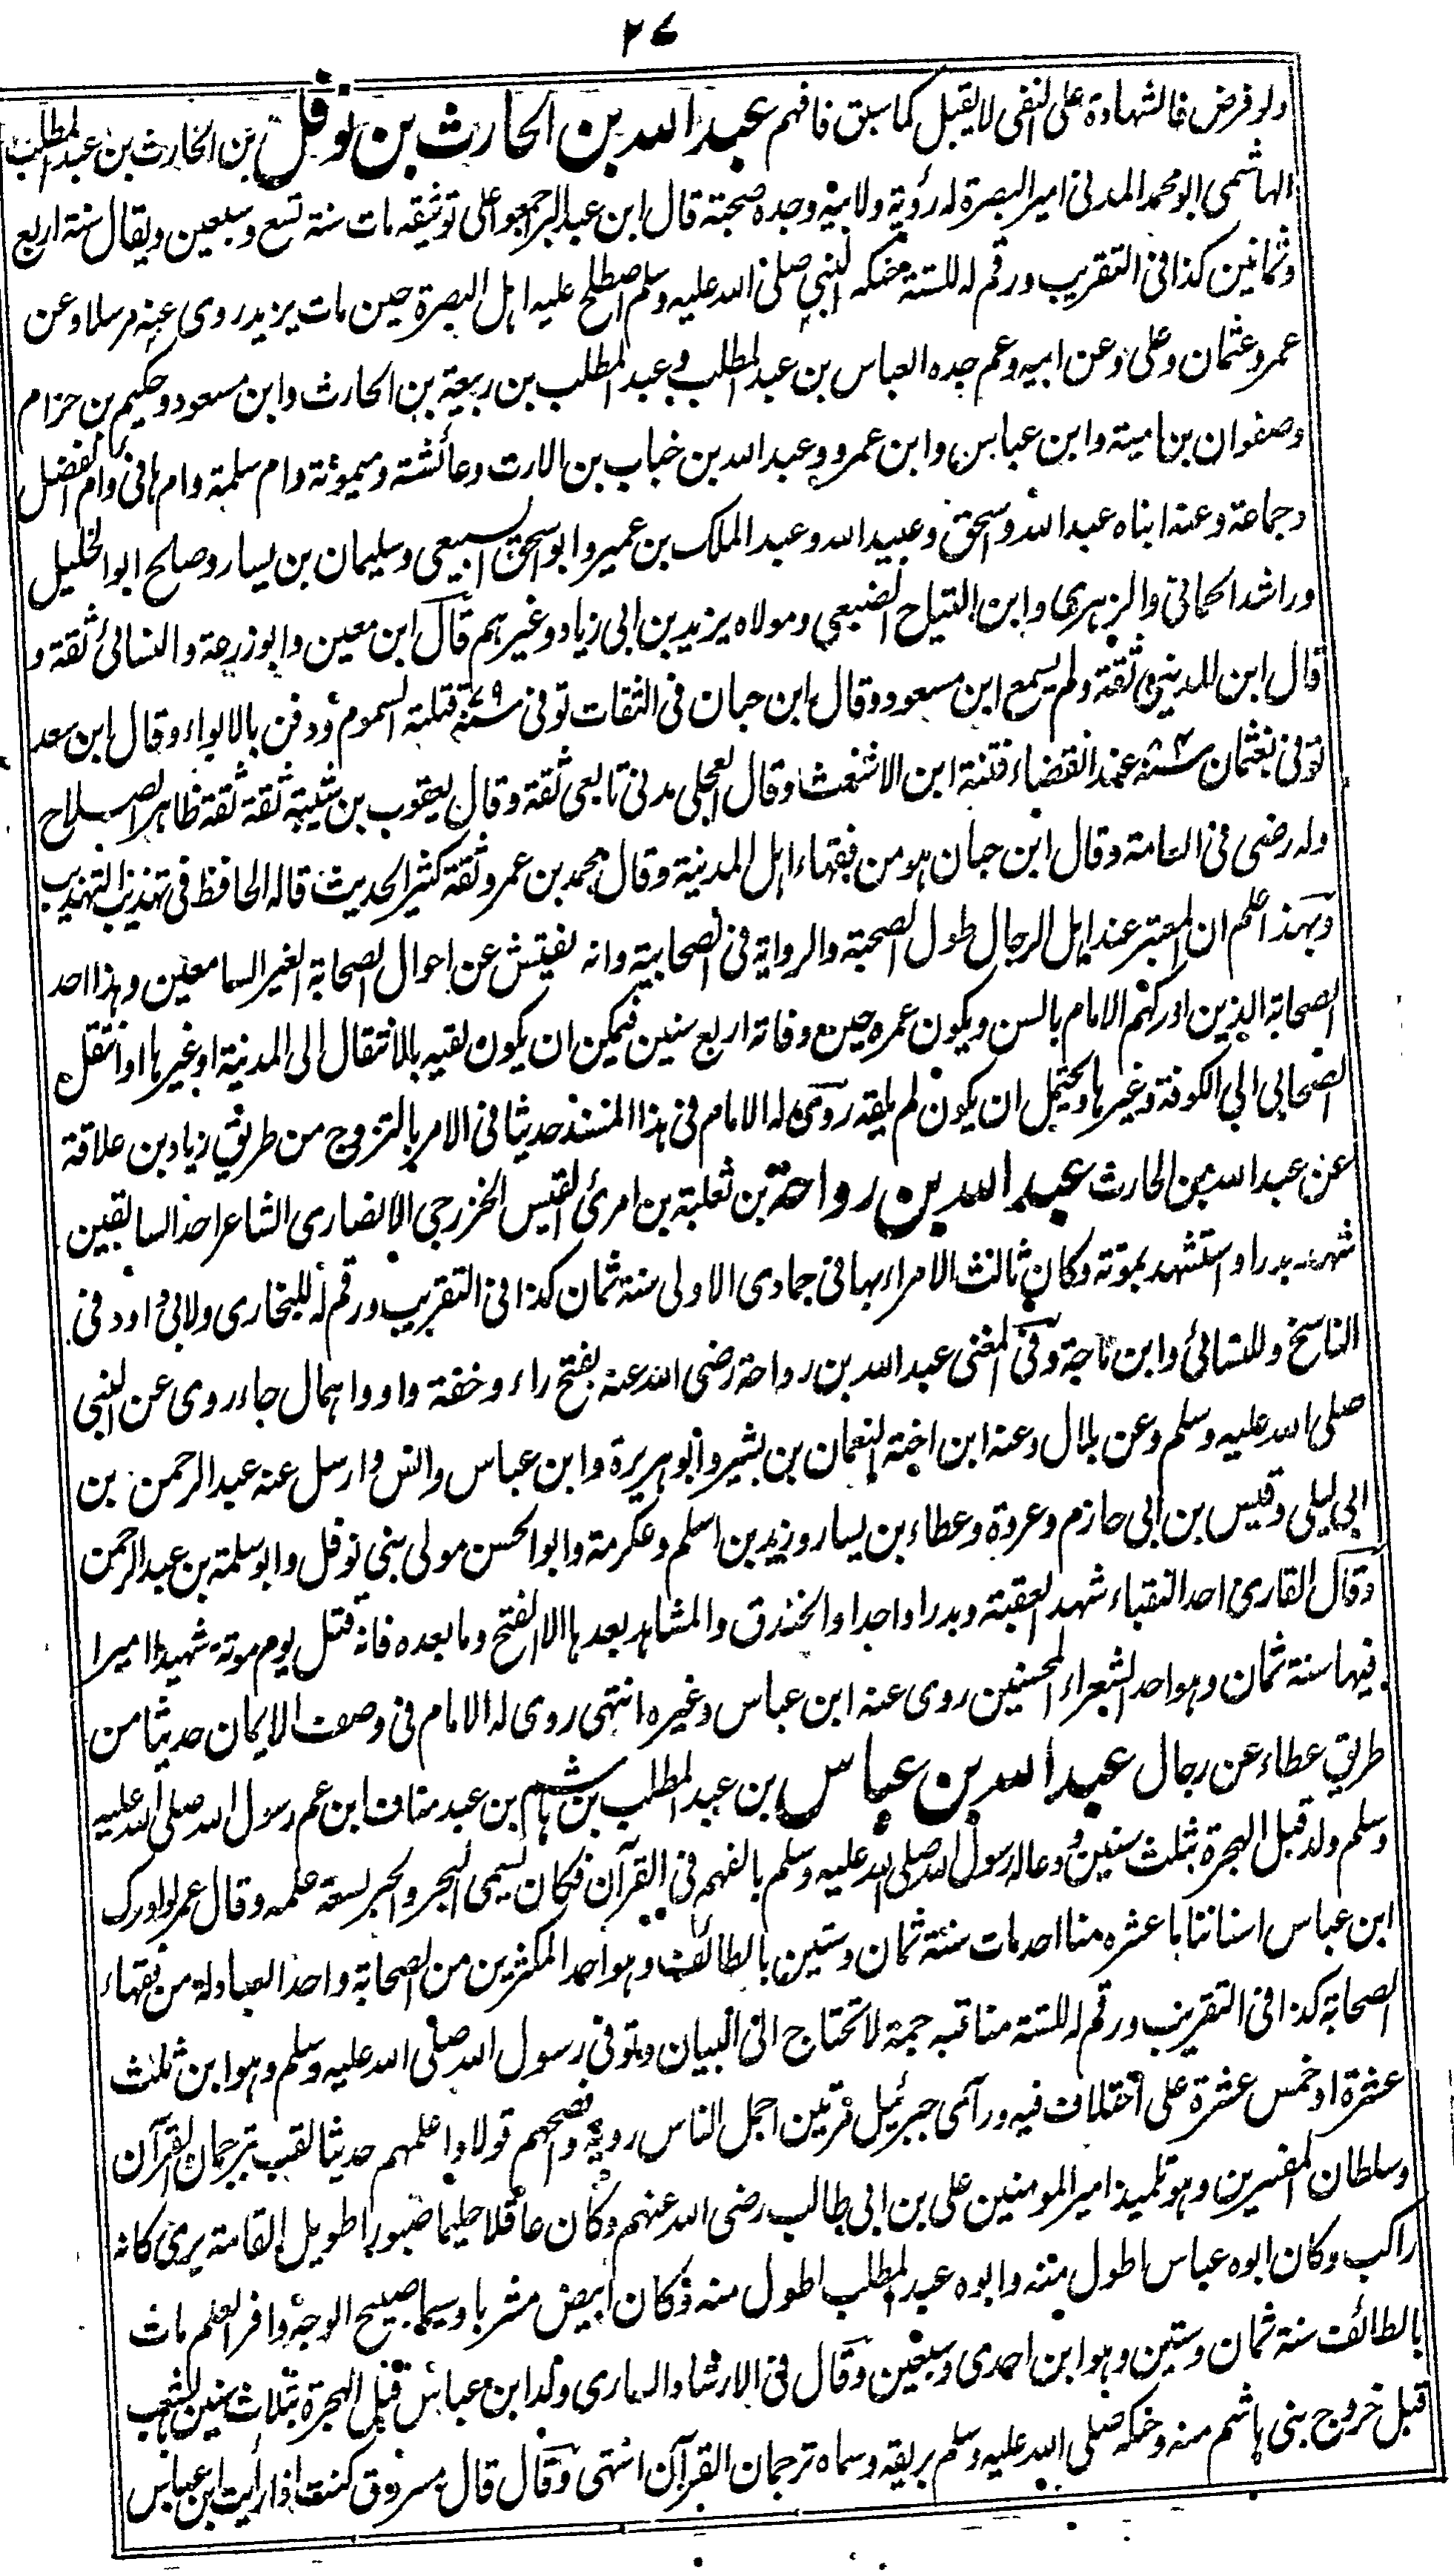 ٢٧
ولو فرض فالشهادة على النفى لايقبل كما سبق فافهم عبد الله بن الحارث بن نوفل بن الحارث بن عبد المطلب
الهاشمى ابو محمد المدنى امير البصرة له رؤية ولابيه وجده صحبة قال ابن عبد البر اجمعوا على توثيقه مات سنة تسع وسبعين ويقال سنة اربع
وثمانين كذا فى التقريب ورقم له للستة حنكه النبي صلى الله عليه وسلم اصطلح عليه اهل البصرة حين مات يزيد روى عنه مرسلا وعن
عمر وعثمان وعلى وعن ابيه وعم جده العباس بن عبد المطلب وعبد المطلب بن ربيعة بن الحارث وابن مسعود وحكيم بن حزام
وصفوان بن امية وابن عباس وابن عمرو وعبد الله بن خباب بن الارت وعائشة وميمونة وام سلمة وام هانى وام الفضل
وجماعة وعنه ابناه عبد الله واسحق وعبيد الله وعبد الملك بن عمير وابو اسحق السبيعى وسليمان بن يسار وصلح ابو الخليل
وراشد الحمانى والزهرى وابن التياح الضبعى ومولاه يزيد بن ابى زياد وغيرهم قال ابن معين وابو زرعة والنسائى ثقة و
قال ابن المدينى ثقة ولم يسمع ابن مسعود وقال ابن حبان فى الثقات توفى سنة ٧٩ قتلته السموم ودفن بالابواء وقال ابن سعد
توفى بعثمان سنة عند انقضاء فتنة ابن الاشعث وقال العجلى مدنى تابعى ثقة وقال يعقوب بن شيبة ثقة ثقة ظاهر الصلاح
وله رضى فى العامة وقال ابن حبان هو من فقهاء اهل المدينة وقال محمد بن عمر ثقة كثير الحديث قاله الحافظ فى تهذيب التهذيب
وبهذا اعلم ان المعتبر عند اهل الرجال طول الصحبة والرواية فى الصحابية وانه نفيتش عن احوال الصحابة الغير السامعين وهذا احد
الصحابة الذين ادركهم الامام بالسن ويكون عمره حين وفاته اربع سنين فيمكن ان يكون لقيه بالانتقال الى المدينة او غيرها او انتقل
الصحابى الى الكوفة وغيرها ويحتمل ان يكون لم يلقه روى له الامام فى هذا المسند حديثا فى الامر بالتزوج من طريق زياد بن علاقة
عن عبد الله بن الحارث عبد الله بن رواحة بن ثعلبة بن امرئ القيس الخزرجى الانصارى الشاعر احد السابقين
شهد بدرا واستشهد بموتة وكان ثالث الامراء بها فى جمادى الاولى سنة ثمان كذا فى التقريب ورقم له للبخارى ولابى داود فى
الناسخ وللنسائى وابن ماجة وفى المغنى عبد الله بن رواحة رضى الله عنه بفتح راء وخفة واو واهمال حاء روى عن النبى
صلى الله عليه وسلم وعن بلال وعنه ابن اخته النعمان بن بشير وابو هريرة وابن عباس وانس وارسل عنه عبد الرحمن بن
ابى ليلى وقيس بن ابى حازم وعروة وعطاء بن يسار وزيد بن اسلم وعكرمة وابو الحسن مولى بنى نوفل وابو سلمة بن عبد الرحمن
وقال القارى احد النقباء شهد العقبة وبدرا واحدا والخندق والمشاهد بعدها الا الفتح وما بعده فانه قتل يوم موتة شهيدا اميرا
فيها سنة ثمان وهو احد الشعراء المحسنين روى عنه ابن عباس وغيره انتهى روى له الامام فى وصف الايمان حديثا من
طريق عطاء عن رجال عبد الله بن عباس بن عبد المطلب بن هاشم بن عبد مناف ابن عم رسول الله صلى الله عليه
وسلم ولد قبل الهجرة بثلث سنين ودعا له رسول الله صلى الله عليه وسلم بالفهم فى القرآن فكان يسمى البحر والحبر لسعة علمه وقال عمر لو ادرك
ابن عباس اسناننا ما عشره منا احد مات سنة ثمان وستين بالطائف وهو احد المكثرين من الصحابة واحد العبادلة من فقهاء
الصحابة كذا فى التقريب ورقم له للستة مناقبه جمة لا تحتاج الى البيان وتوفى رسول الله صلى الله عليه وسلم وهو ابن ثلث
عشرة او خمس عشرة على اختلاف فيه ورآى جبرئيل مرتين اجمل الناس روية وافصحهم قولا واعلمهم حديثا لقب بترجمان القرآن
وسلطان المفسرين وهو تلميذ امير المومنين على بن ابى طالب رضى الله عنهم وكان عاقلا حليما صبورا طويل القامة يرى كانه
راكب وكان ابوه عباس اطول منه وابوه عبد المطلب اطول منه وكان ابيض مشربا وسيما صبيح الوجه وافر العلم مات
بالطائف سنة ثمان وستين وهو ابن احدى وسبعين وقال فى الارشاد السارى ولد ابن عباس قبل الهجرة بثلاث سنين بالشعب
قبل خروج بنى هاشم منه وحنكه صلى الله عليه وسلم بريقه وسماه ترجمان القرآن انتهى وقال قال مسروق كنت اذا رأيت ابن عباس